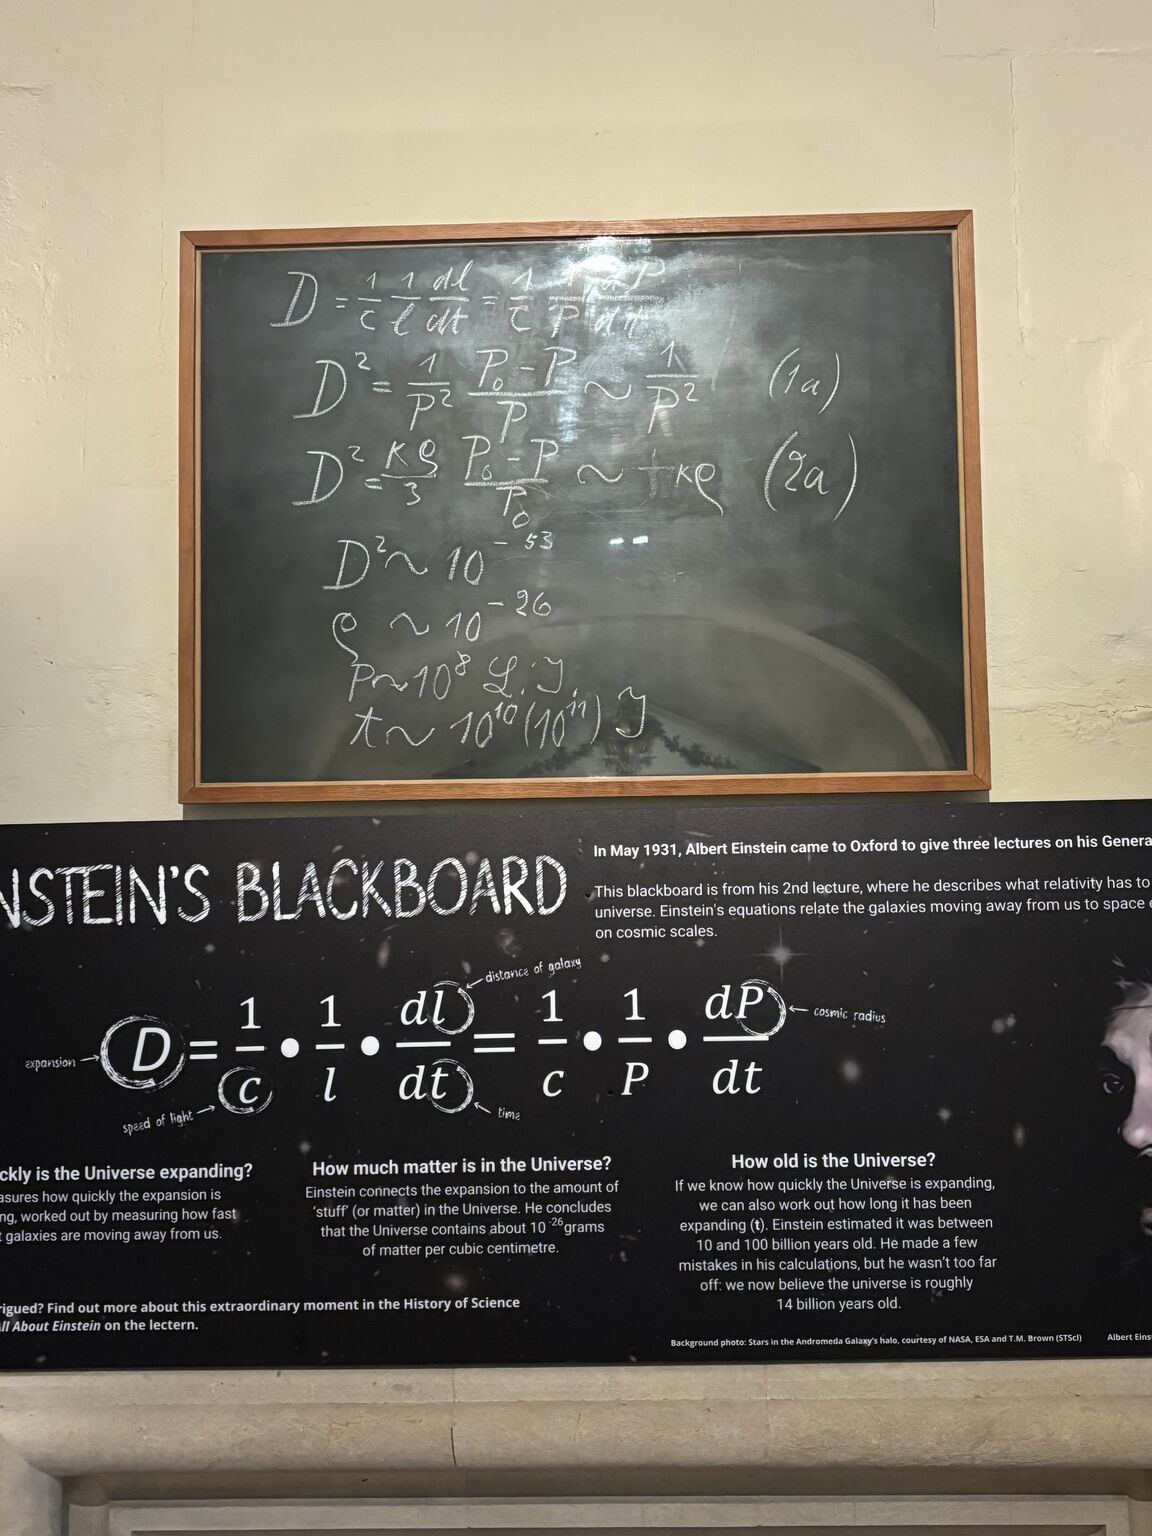 D = 1/c 1/l dl/dt = 1/c 1/P dP/dt
D² = 1/P² P₀-P/P ~ 1/P² (1a)
D² = κϱ/3 P₀-P/P₀ ~ κϱ (2a)
D² ~ 10⁻⁵³
ϱ ~ 10⁻²⁶
P ~ 10⁸ L.J.
t ~ 10¹⁰ (10¹¹) J
NSTEIN'S BLACKBOARD
In May 1931, Albert Einstein came to Oxford to give three lectures on his Genera
This blackboard is from his 2nd lecture, where he describes what relativity has to
universe. Einstein's equations relate the galaxies moving away from us to space
on cosmic scales.
distance of galaxy
D = 1/c • 1/l • dl/dt = 1/c • 1/P • dP/dt
cosmic radius
expansion
speed of light
time
ckly is the Universe expanding?
asures how quickly the expansion is
ng, worked out by measuring how fast
t galaxies are moving away from us.
How much matter is in the Universe?
Einstein connects the expansion to the amount of
'stuff' (or matter) in the Universe. He concludes
that the Universe contains about 10⁻²⁶ grams
of matter per cubic centimetre.
How old is the Universe?
If we know how quickly the Universe is expanding,
we can also work out how long it has been
expanding (t). Einstein estimated it was between
10 and 100 billion years old. He made a few
mistakes in his calculations, but he wasn't too far
off: we now believe the universe is roughly
14 billion years old.
rigued? Find out more about this extraordinary moment in the History of Science
ll About Einstein on the lectern.
Background photo: Stars in the Andromeda Galaxy's halo, courtesy of NASA, ESA and T.M. Brown (STScI)
Albert Einst